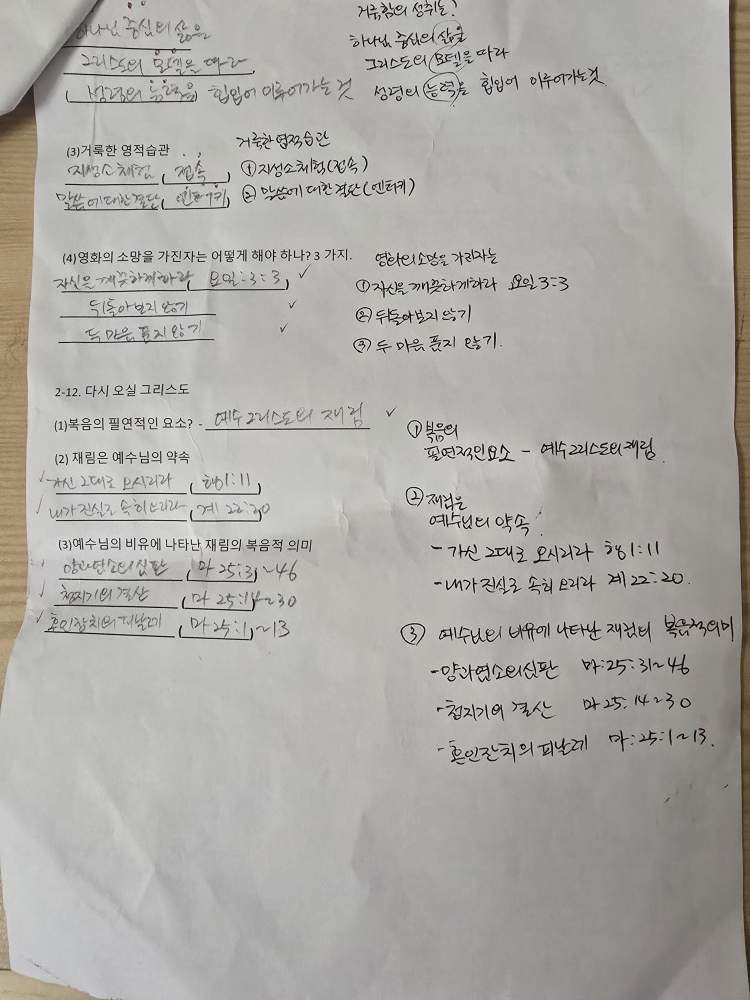 하나님 중심의 삶을
그리스도의 모델을 따라
(성령의 능력을) 힘입어 이루어가는 것
거룩함의 성취는?
하나님 중심의 삶을
그리스도의 모델을 따라
성령의 능력을 힘입어 이루어가는것
(3)거룩한 영적습관
지성소체험 (접속)
말씀에대한결단 (엔터키)
거룩한영적습관
① 지성소체험(접속)
② 말씀에 대한 결단(엔터키)
(4)영화의 소망을 가진자는 어떻게 해야 하나? 3 가지.
자신을 깨끗하게하라 (요일:3:3) ✓
뒤돌아보지 않기 ✓
두 마음 품지 않기 ✓
영화의소망을 가진자는
① 자신을 깨끗하게하라 요일 3:3
② 뒤돌아보지 않기
③ 두 마음 품지 않기.
2-12. 다시 오실 그리스도
(1)복음의 필연적인 요소? - 예수그리스도의 재림 ✓
(2) 재림은 예수님의 약속
✓ 가신 그대로 오시리라 (행1:11)
✓ 내가진실로 속히오리라 (계 22:20)
(3)예수님의 비유에 나타난 재림의 복음적 의미
✓ 양과염소의심판 (마 25:31)~46
✓ 청지기의 결산 (마 25:14)~30
✓ 혼인잔치의 피날레 (마25:1)~13
① 복음의
필연적인요소 - 예수그리스도의재림
② 재림은
예수님의 약속!
- 가신 그대로 오시리라 행1:11
- 내가 진실로 속히 오리라 계22:20.
③ 예수님의 비유에 나타난 재림의 복음적의미
- 양과염소의심판 마:25:31~46
- 청지기의 결산 마 25:14~30
- 혼인잔치의 피날레 마:25:1~13.